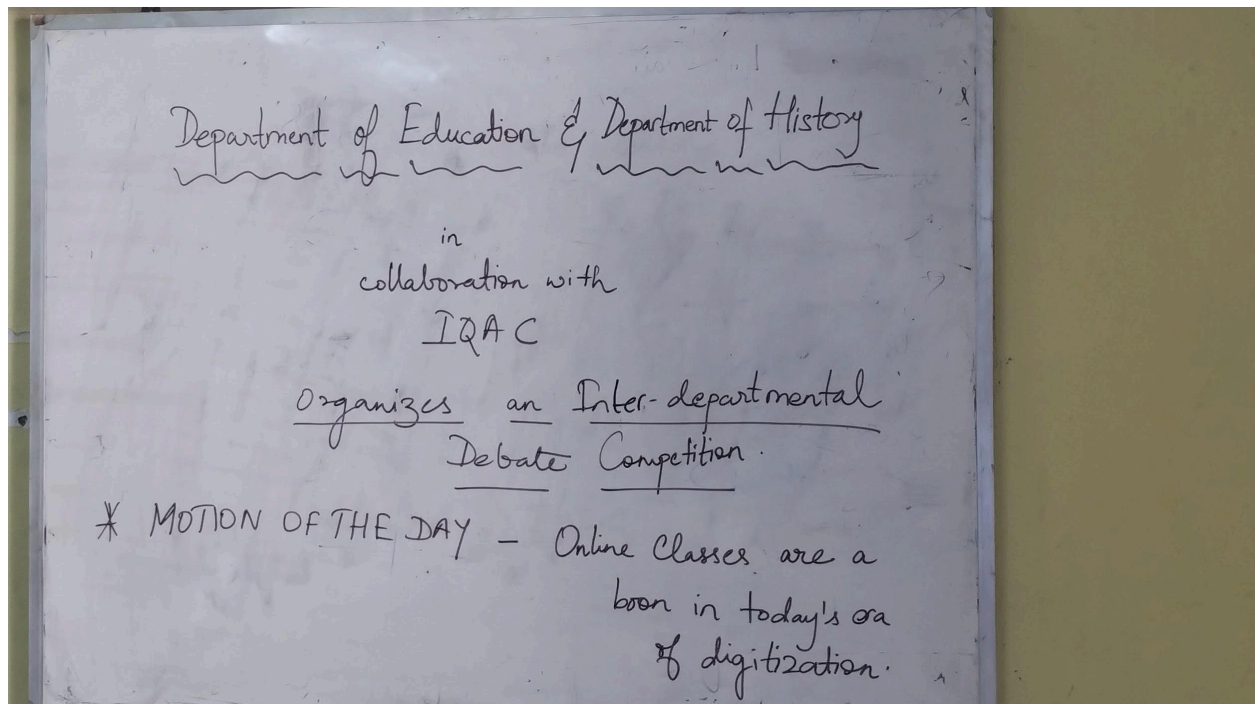 Department of Education & Department of History
in
collaboration with
IQAC
Organizes an Inter-departmental
Debate Competition.
* MOTION OF THE DAY - Online Classes are a
boon in today's era
of digitization.